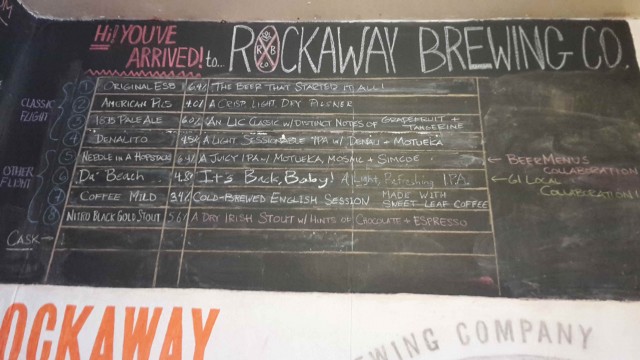 Hi! YOU'VE ARRIVED! to... ROCKAWAY BREWING CO.
R K B Co
CLASSIC FLIGHT
1 ORIGINAL ESB THE BEER THAT STARTED IT ALL!
2 AMERICAN PILS A CRISP, LIGHT DRY PILSNER
3 PALE ALE AN LIC CLASSIC W/ DISTINCT NOTES OF GRAPEFRUIT + TANGERINE
4 DENALITO A LIGHT SESSIONABLE IPA W/ DENALI + MOTUEKA
OTHER FLIGHT
5 NEEDLE IN A HOPSTACK A JUICY IPA W/ MOTUEKA, MOSAIC + SIMCOE ← BEERMENUS COLLABORATION
6 DA' BEACH 4.8% It's Back, Baby! A Light, Refreshing IPA ← GI LOCAL COLLABORATION
7 COFFEE MILD 3.4% COLD-BREWED ENGLISH SESSION MADE WITH SWEET LEAF COFFEE
8 NITRO BLACK GOLD STOUT 5.6% A DRY IRISH STOUT W/ HINTS OF CHOCOLATE + ESPRESSO
CASK →
OCKAWAY
WING COMPANY